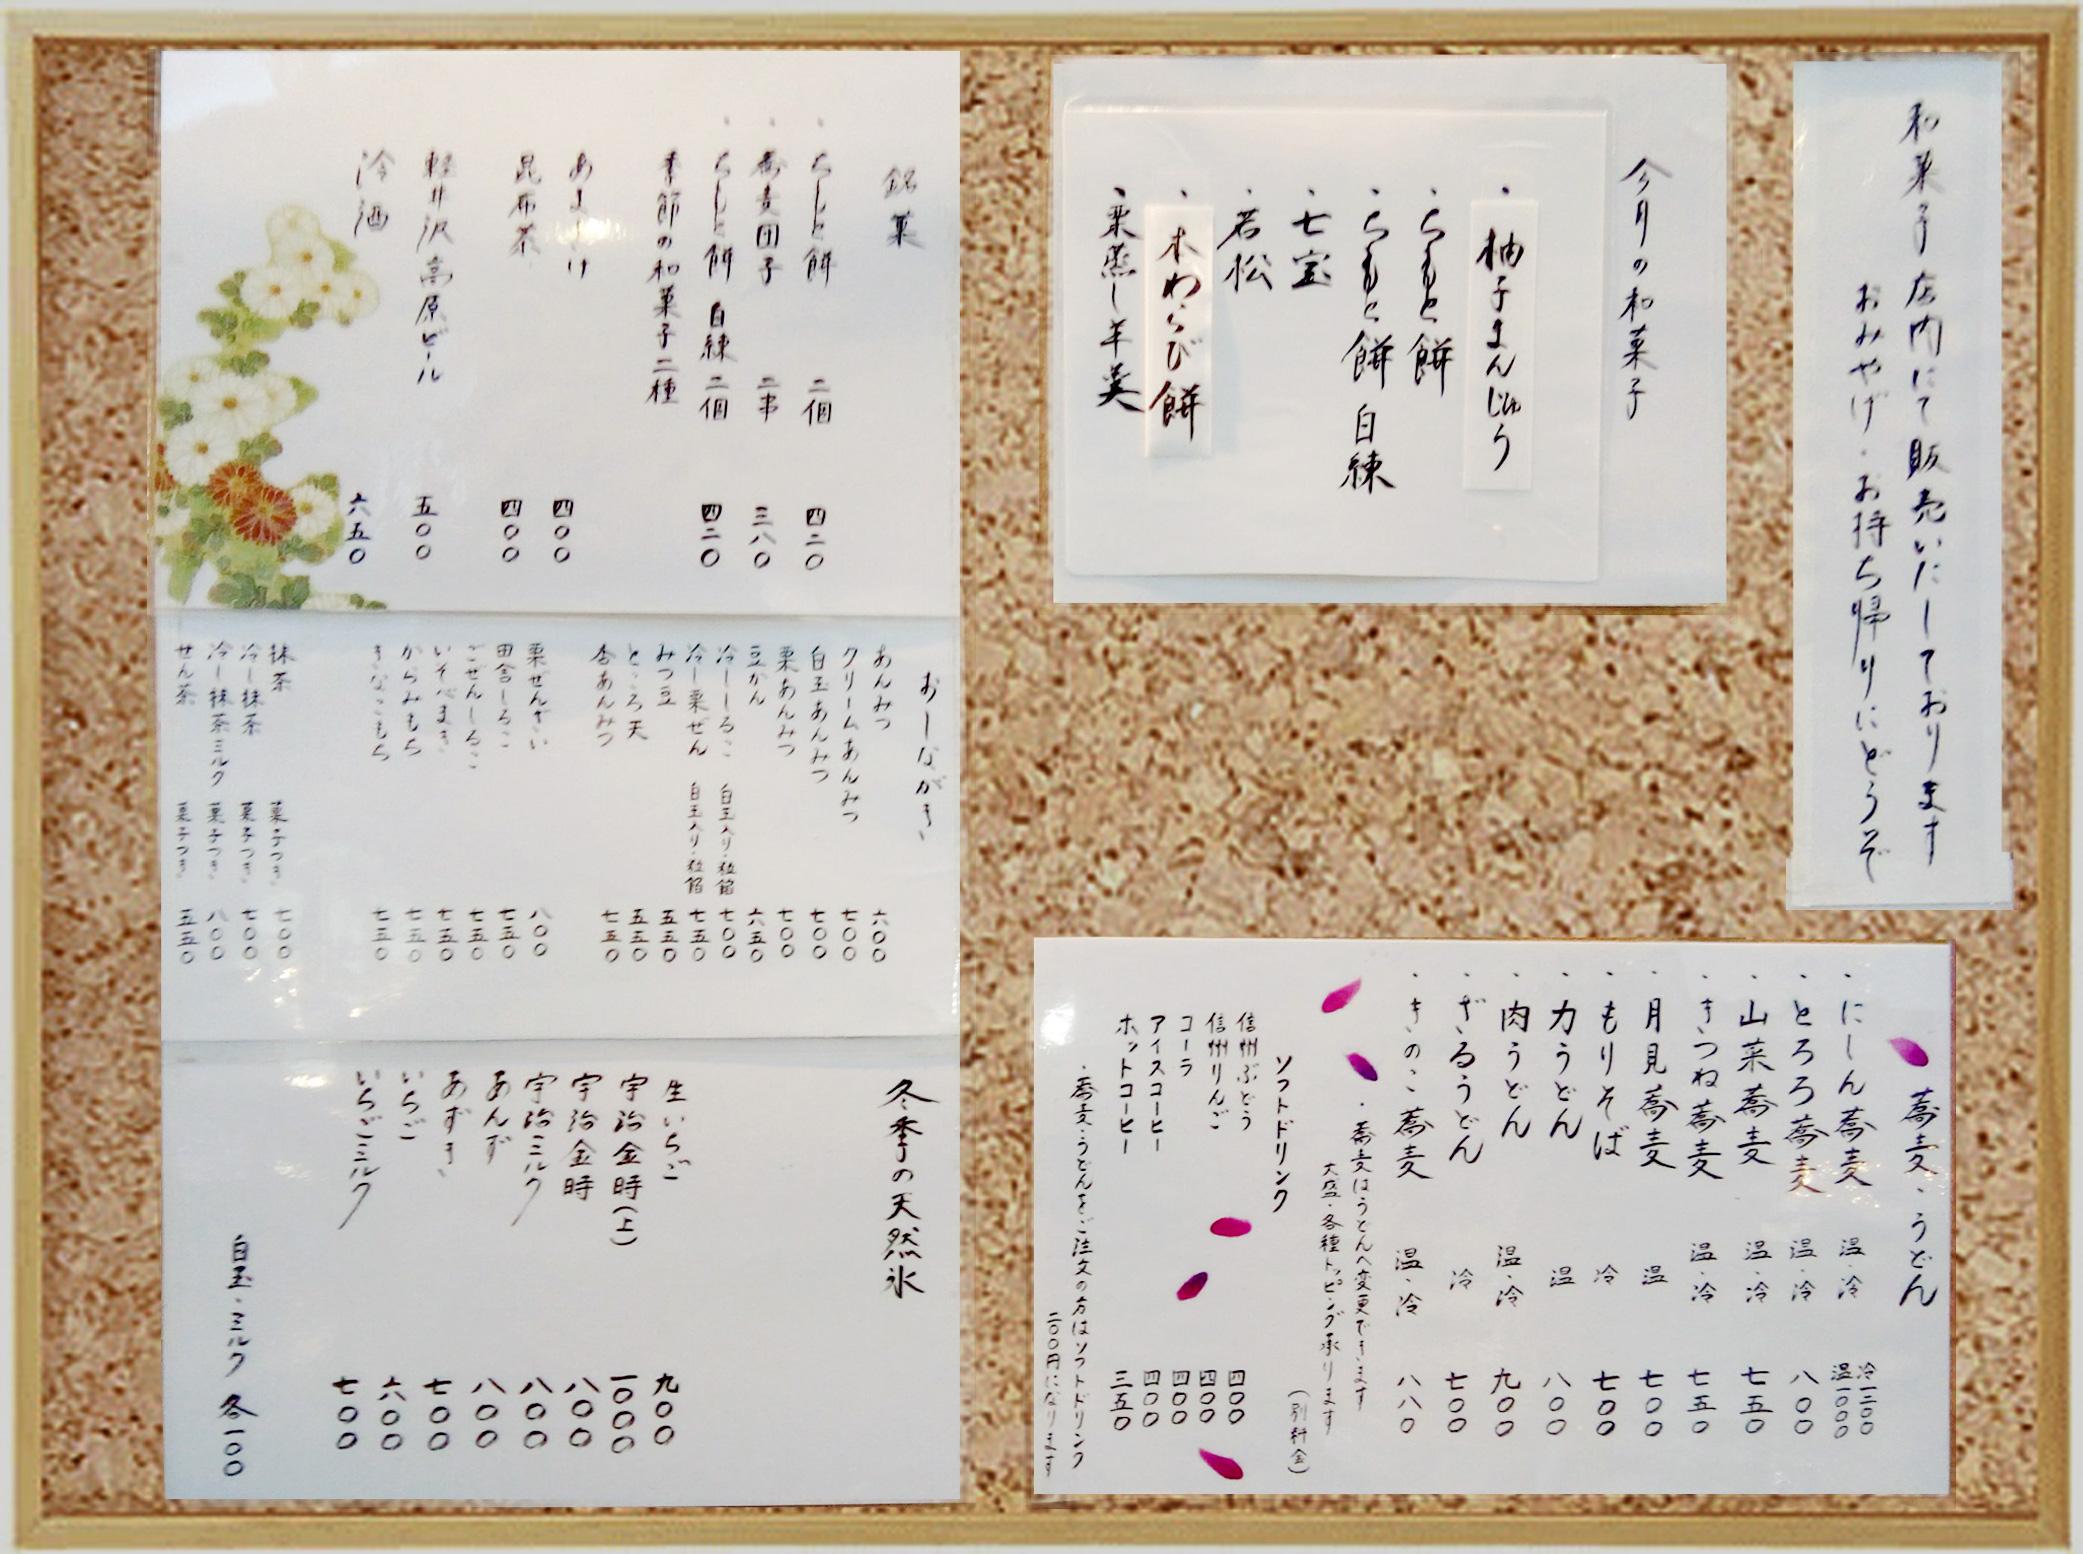 和菓子店内にて販売いたしております
おみやげ・お持ち帰りにどうぞ
今月の和菓子
・柚子まんじゅう
・ちもと餅
・ちもと餅 白練
・七宝
・若松
・木わらび餅
・栗蒸し羊羹
銘菓
・ちもと餅 二個 四二〇
・蕎麦団子 二串 三八〇
・ちもと餅 白練 二個 四二〇
季節の和菓子二種
あまざけ 四〇〇
昆布茶 四〇〇
軽井沢高原ビール 五〇〇
冷酒 六五〇
おしながき
あんみつ 六〇〇
クリームあんみつ 七〇〇
白玉あんみつ 七〇〇
栗あんみつ 七〇〇
豆かん 六五〇
冷ししるこ 白玉入り・粒餡 七〇〇
冷し栗ぜん 白玉入り・粒餡 七五〇
みつ豆 五五〇
ところ天 五五〇
杏あんみつ 七五〇
栗ぜんざい 八〇〇
田舎しるこ 七五〇
ごぜんしるこ 七五〇
いそべまき 七五〇
からみもち 七五〇
きなこもち 七五〇
抹茶 菓子つき 七〇〇
冷し抹茶 菓子つき 七〇〇
冷し抹茶ミルク 菓子つき 八〇〇
せん茶 菓子つき 五五〇
冬季の天然氷
生いちご 九〇〇
宇治金時(上) 一〇〇〇
宇治金時 八〇〇
宇治ミルク 八〇〇
あんず 八〇〇
あずき 七〇〇
いちご 六〇〇
いちごミルク 七〇〇
白玉・ミルク 各一〇〇
蕎麦・うどん
・にしん蕎麦 温・冷 冷一二〇〇 温一〇〇〇
・とろろ蕎麦 温・冷 八〇〇
・山菜蕎麦 温・冷 七五〇
・きつね蕎麦 温・冷 七五〇
・月見蕎麦 温 七〇〇
・もりそば 冷 七〇〇
・力うどん 温 八〇〇
・肉うどん 温・冷 九〇〇
・ざるうどん 冷 七〇〇
・きのこ蕎麦 温・冷 八八〇
・蕎麦はうどんへ変更できます
大盛・各種トッピング承ります
(別料金)
ソフトドリンク
信州ぶどう 四〇〇
信州りんご 四〇〇
コーラ 四〇〇
アイスコーヒー 四〇〇
ホットコーヒー 三五〇
・蕎麦・うどんをご注文の方はソフトドリンク
二〇〇円になります